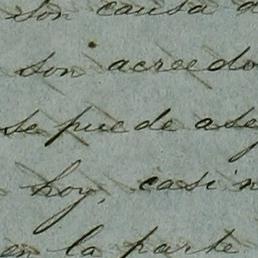 son causa d
son acreedo
se puede ase
hoy, casi n
en la parte